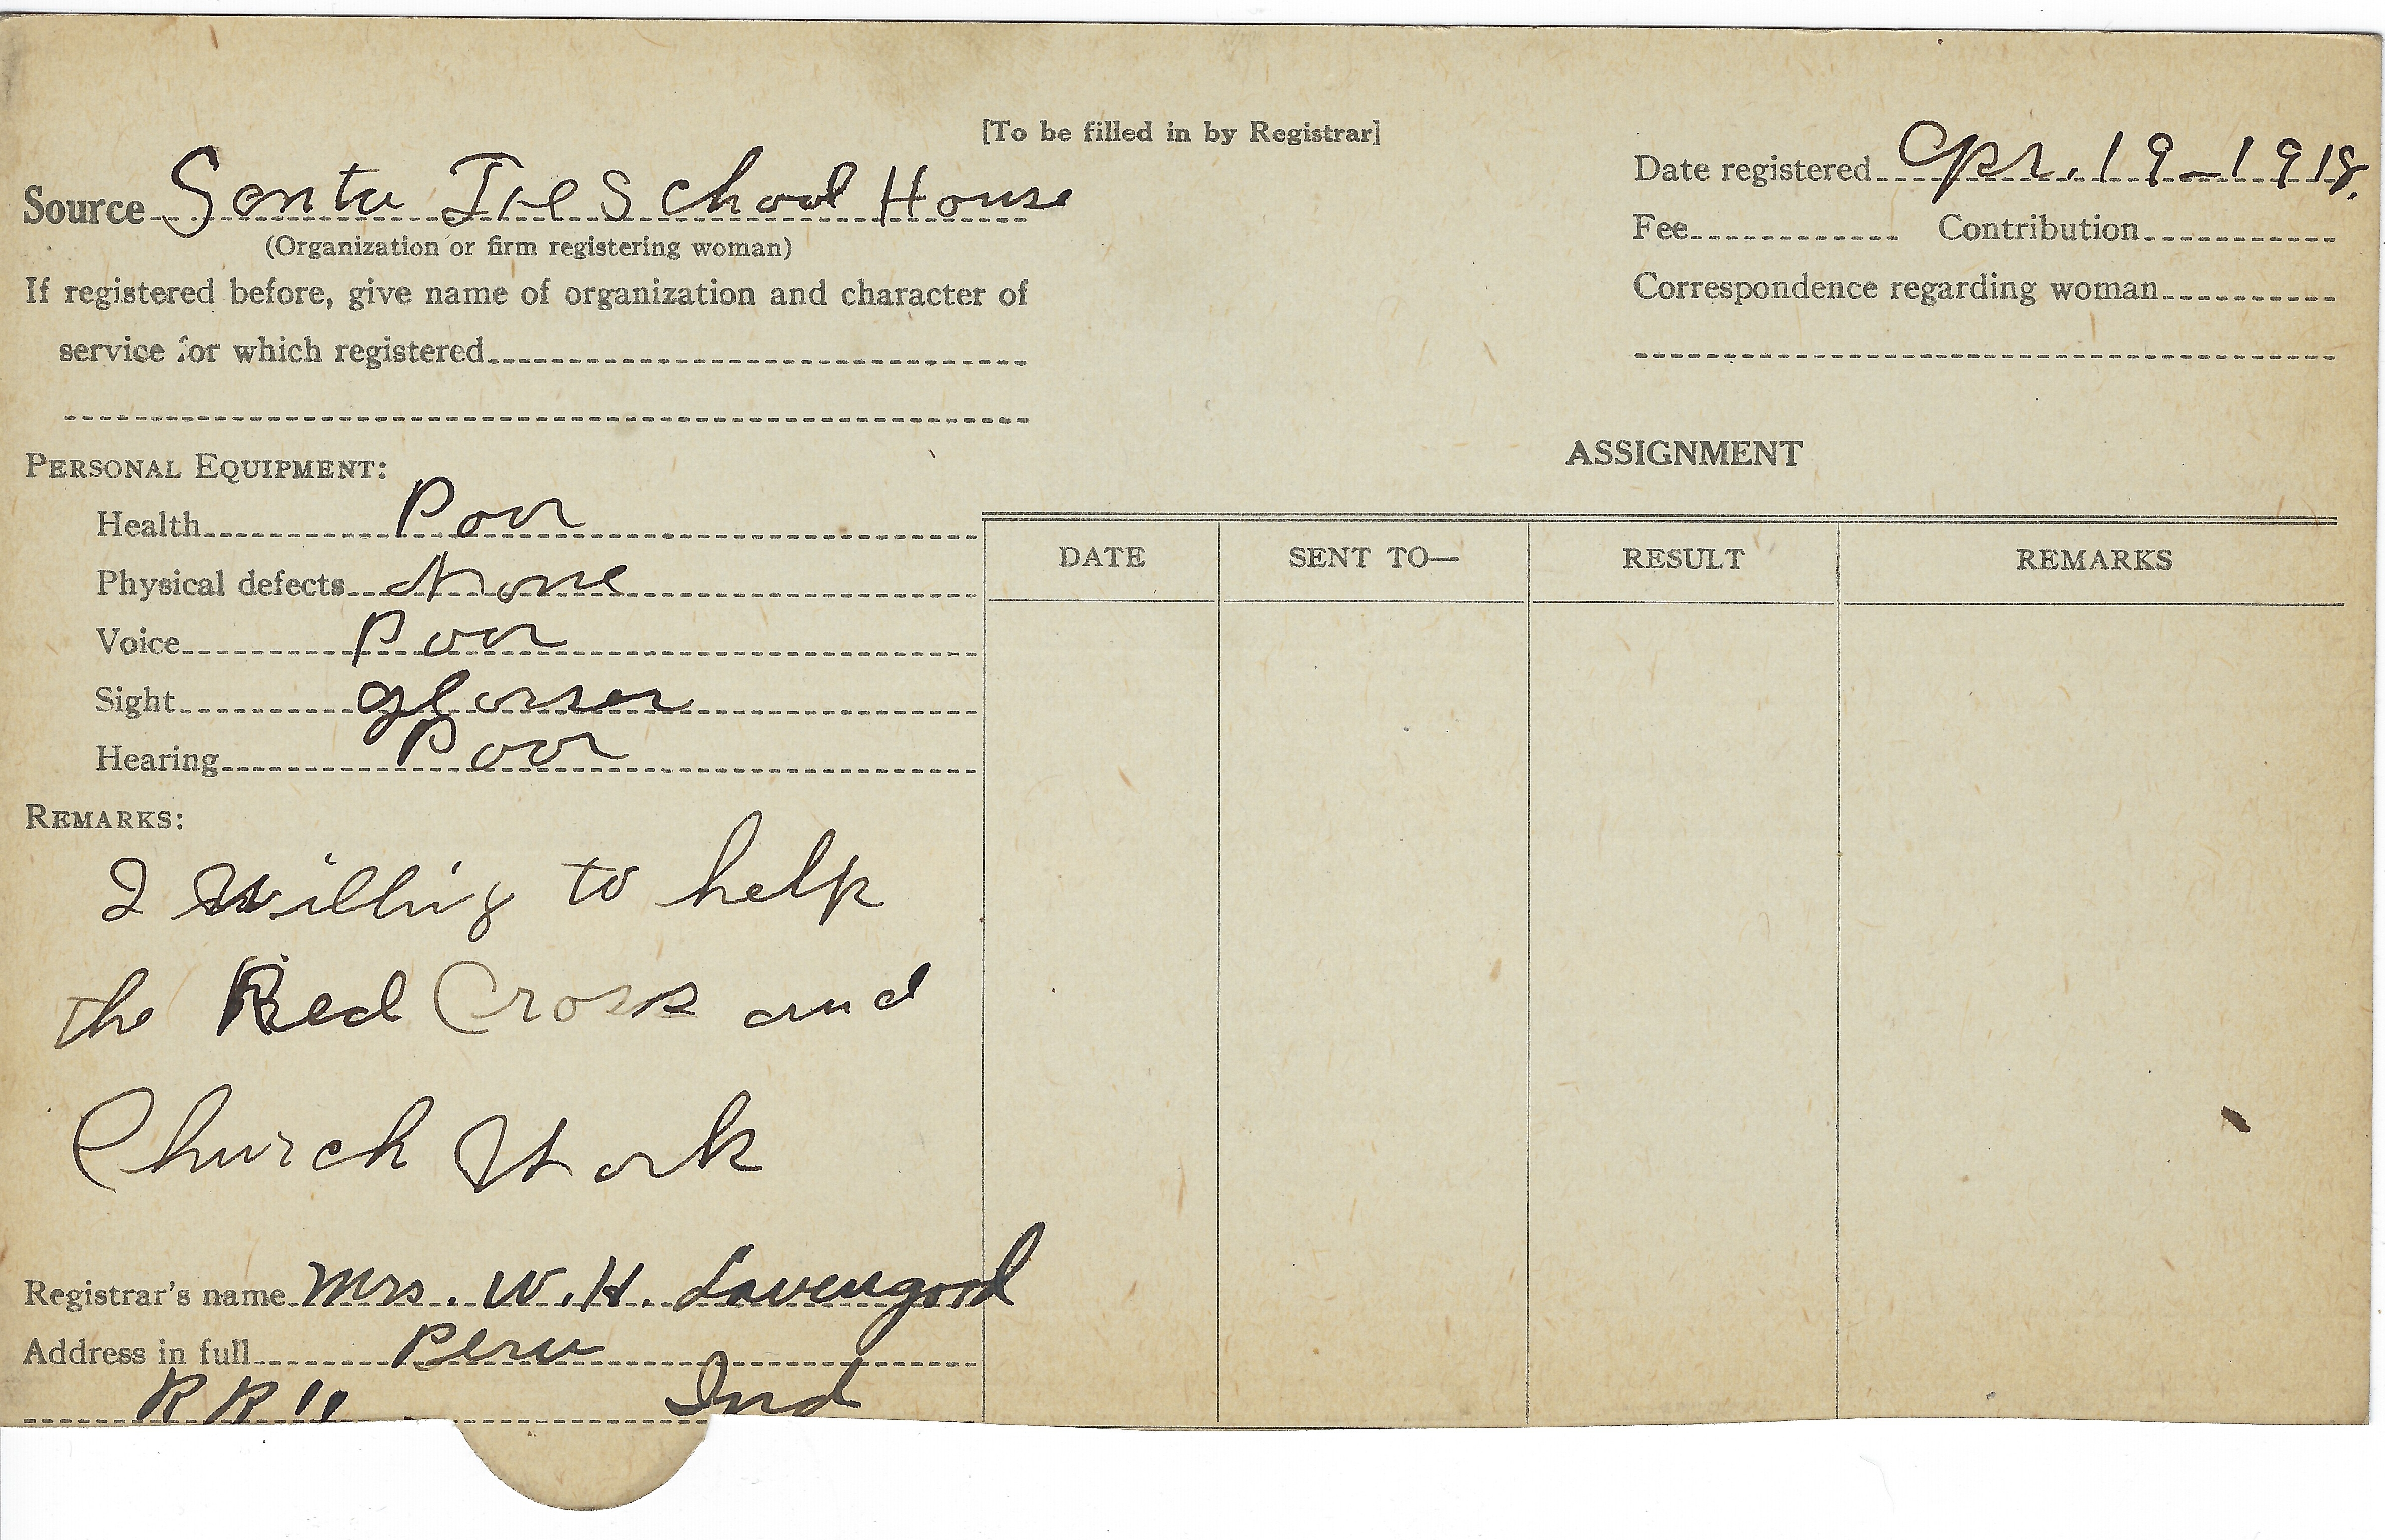 [To be filled in by Registrar]
Source Santa Fe School House
(Organization or firm registering woman)
If registered before, give name of organization and character of
service for which registered
Date registered Apr. 19-1918.
Fee Contribution
Correspondence regarding woman
PERSONAL EQUIPMENT:
Health Poor
Physical defects None
Voice Poor
Sight glasses
Hearing Poor
REMARKS:
I willing to help
the Red Cross and
Church Work
Registrar's name Mrs. W. H. Lavengood
Address in full Peru
R R 11 Ind
ASSIGNMENT
DATE SENT TO— RESULT REMARKS